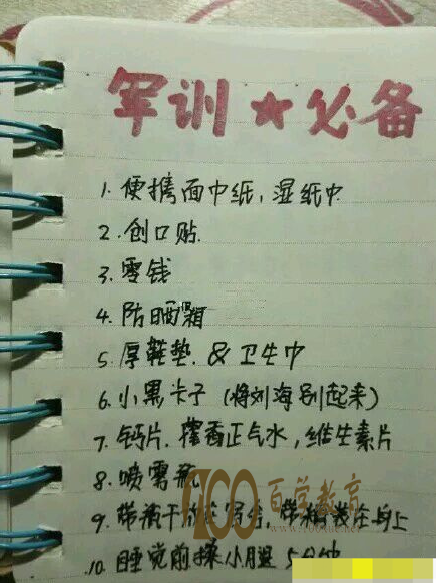 军训★必备
1. 便携面巾纸, 湿纸巾
2. 创口贴
3. 零钱
4. 防晒霜
5. 厚鞋垫. & 卫生巾
6. 小黑卡子 (将刘海别起来)
7. 钙片. 藿香正气水, 维生素片
8. 喷雾瓶
100百学教育
9. 带 宿舍, 带 在身上
10. 睡觉前揉小腿5分钟